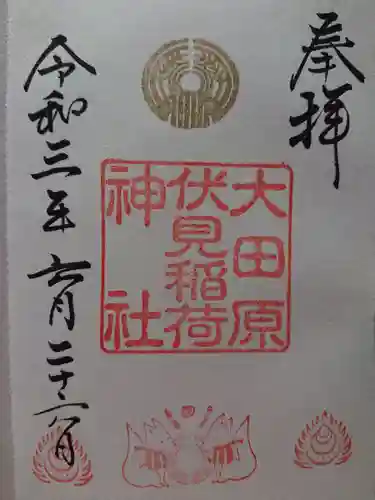 奉拝
大田原
伏見稲荷
神社
令和三年六月二十六日